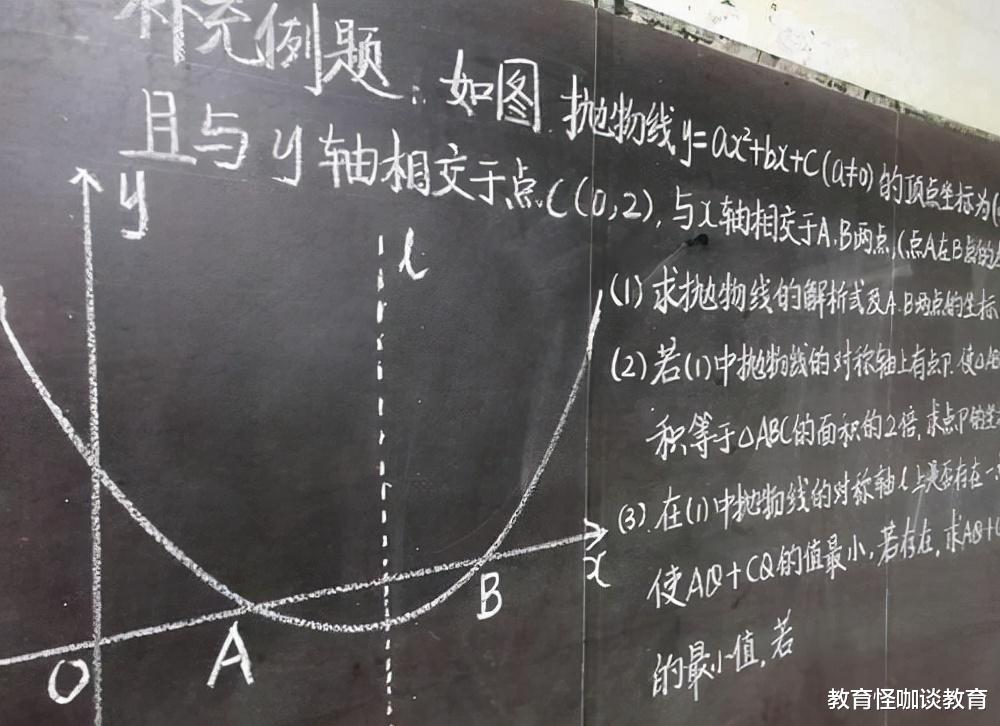 补充例题:如图.抛物线y=ax²+bx+c(a≠0)的顶点坐标为(
且与y轴相交于点C(0,2),与x轴相交于A.B两点,(点A在B点的左
(1)求抛物线的解析式及A.B两点的坐标
(2)若(1)中抛物线的对称轴上有点P.使△AB
积等于△ABC的面积的2倍,求点P的坐
(3).在(1)中抛物线的对称轴l上是否存在一
使AQ+CQ的值最小,若存在,求AQ+C
的最小值,若
y
l
x
O
A
B
教育怪咖谈教育